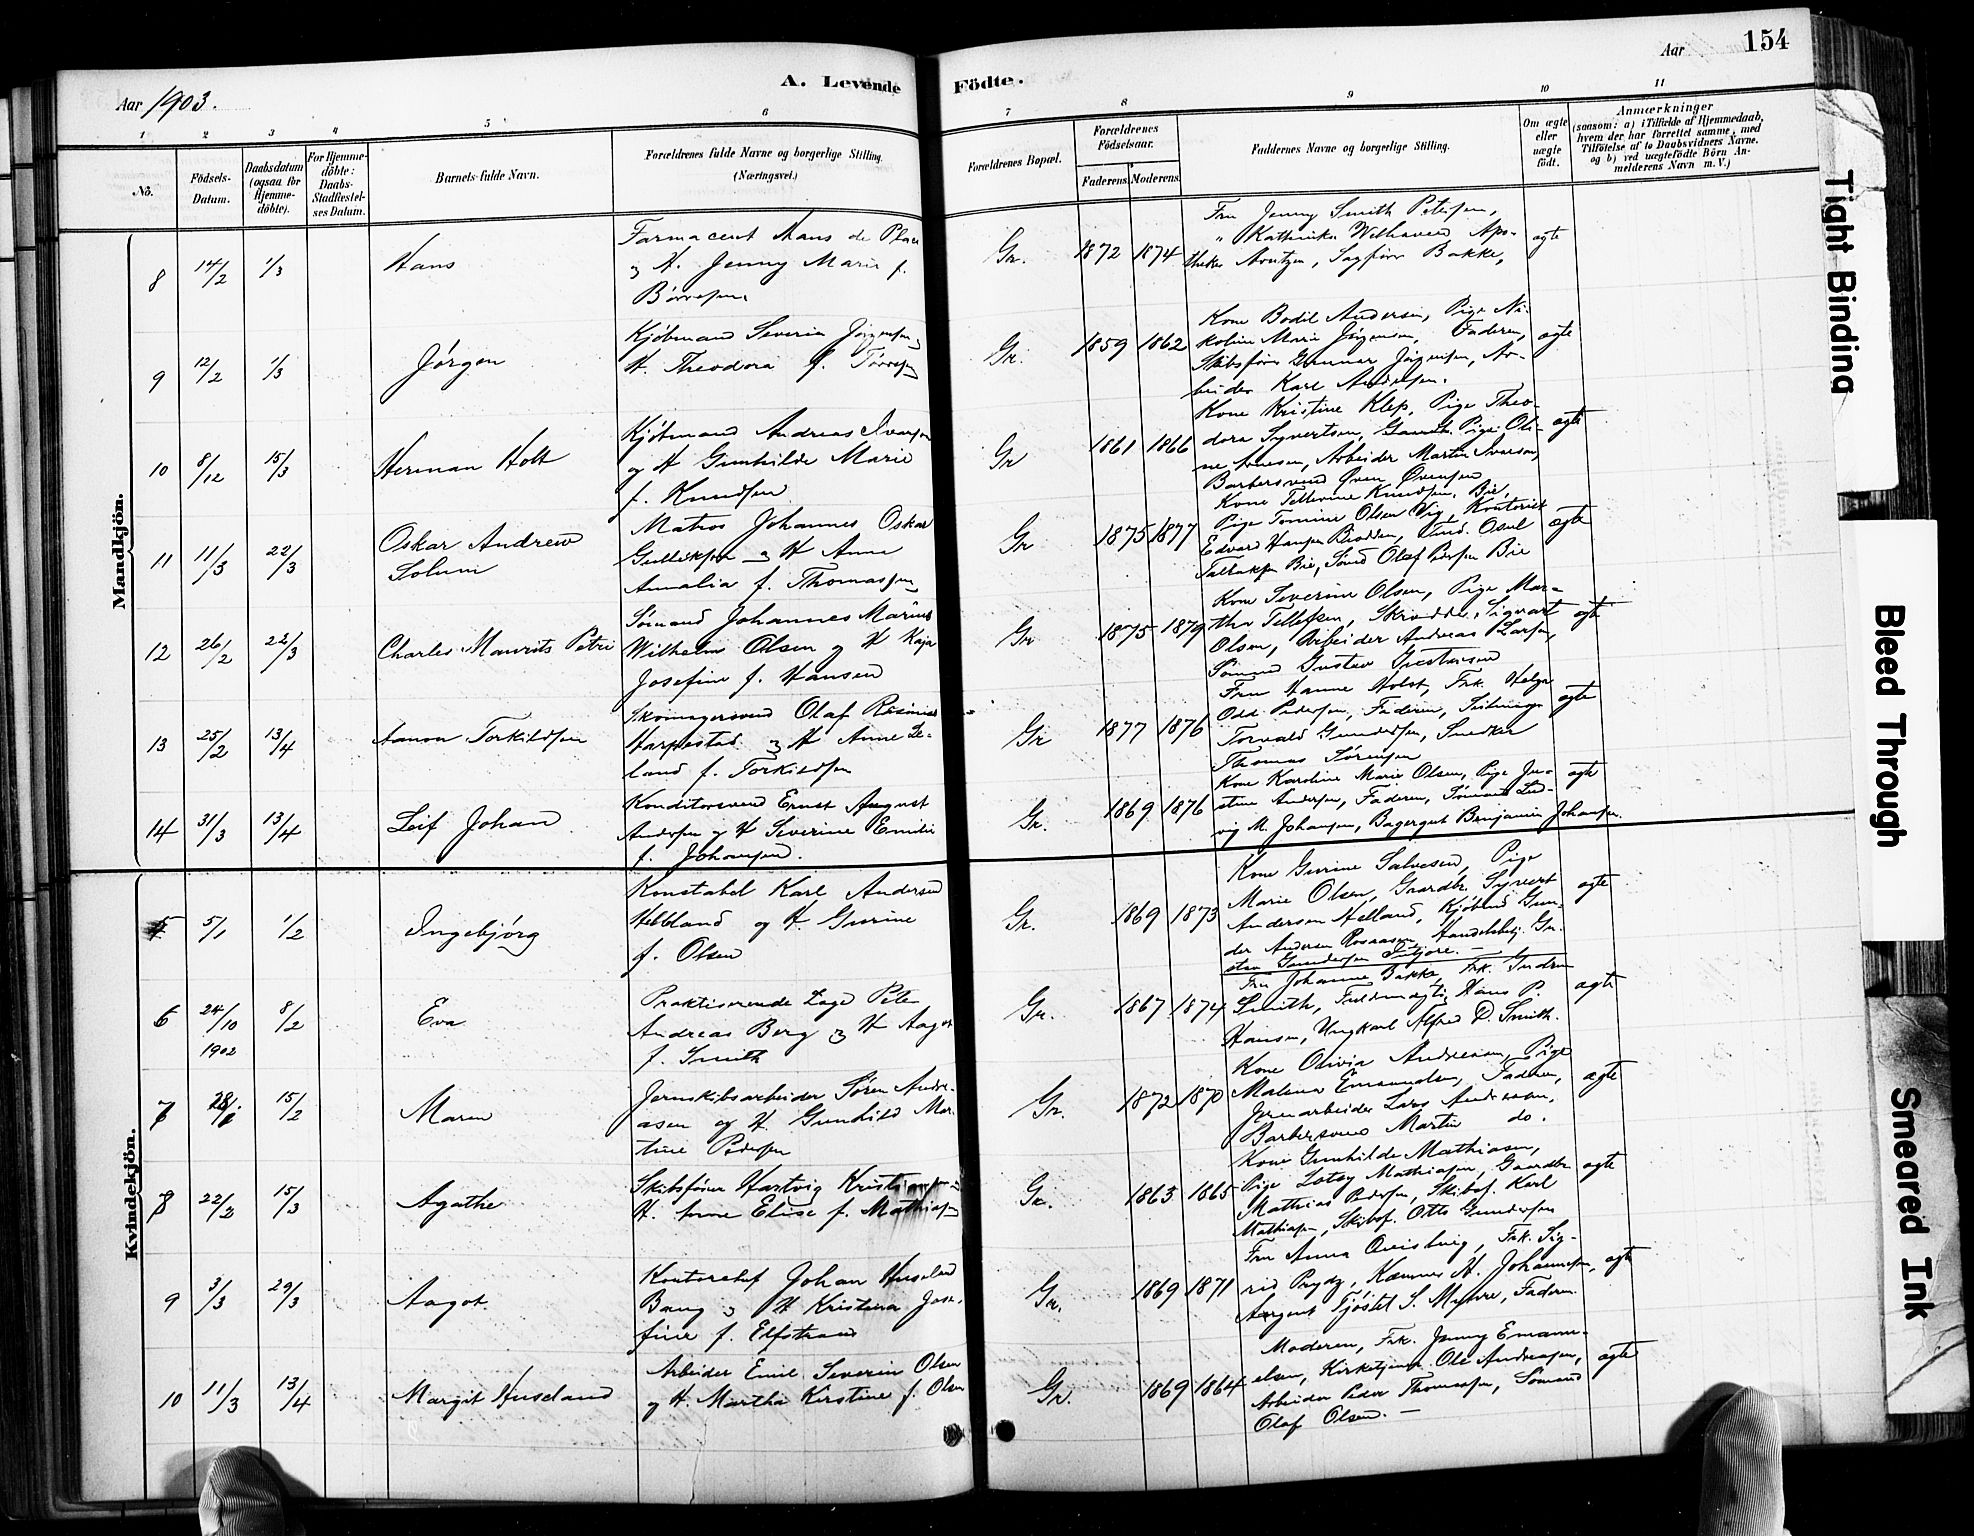 Aar 1903.
A. Levende
Födte.
Aar
154
1 2 3 4 5 6 7 8 9 10 11
No.
Födsels-
Datum.
Daabsdatum
(ogsaa for
Hjemme-
döbte).
For Hjemme-
döbte:
Daabs-
Stadfestel-
ses Datum.
Barnets fulde Navn.
Forældrenes fulde Navne og borgerlige Stilling.
(Næringsvei.)
Forældrenes Bopæl.
Forældrenes
Födselsaar.
Faderens. Moderens.
Faddernes Navne og borgerlige Stilling.
Om ægte
eller
uægte
født.
Anmærkninger
(saasom: a) i Tilfælde af Hjemmedaab,
hvem der har forrettet samme, med
Tilföielse af to Daabsvidners Navne.
og b) ved uægtefödte Börn An-
melderens Navn m. V.)
Mandkjön.
8 14/2 1/3 Hans
Farmacent Hans de
og H. Jenny Marie f.
Børresen
Gr. 1872 1874
Fru Jenny Smith Petersen,
" Kathinka Welhaven Apo-
theker Arntzen, Sagfører Bakke,
ægte
9 12/2 1/3 Jörgen
Kjöbmand Severin Jörgensen
H. Theodora f.
Gr. 1859 1862
Kone Bodil Andersen, Pige Ni-
koline Marie Jörgensen, Faderen,
Skibsförer Gunnar Jörgensen, Ar-
beider Karl Andersen.
ægte
10 8/12 15/3 Herman Holt
Kjöbmand Andreas Ivarsen
og H Gunhilde Marie
f. Knudsen
Gr 1861 1866
Kone Kristine Klep, Pige Theo-
dora Syvertsen, Pige Oli-
ne Arnesen, Arbeider Martin Ivarsen,
Barbersvend Sven Svensen
ægte
11 11/3 22/3 Oskar Andrew
Solum
Matros Johannes Oskar
Gulliksen og H Anne
Amalia f. Thomassen
Gr 1875 1877
Kone Tellevine Knudsen, Bie,
Pige Tomine Olsen Vig, Kontorist
Edvard Hansen Brodden, Osul
Tallaksen Bie, Olaf Pedersen Bie
ægte
12 26/2 22/3 Charles Maurits Petri
Sömand Johannes Marius
Wilhelm Olsen og H Kaja
Josefine f. Hansen
Gr 1875 1879
Kone Severine Olsen, Pige Mar-
tha Tellefsen, Skrædder Sigvart
Olsen, Arbeider Andreas Larsen,
Sömand Gustav
ægte
13 25/2 13/4 Aanon Torkildsen
Skomagersvend Olaf Rasmus
Harpestad og H Anne Le-
land f. Torkildsen
Gr 1877 1876
Fru Hanne Holst, Frk. Helga
Odd Pedersen, Faderen,
Torvald Gundersen, Snedker
Thomas Sörensen
ægte
14 31/3 13/4 Leif Johan
Konditorsvend Ernst August
Andersen og H Severine Emilie
f. Johansen.
Gr. 1869 1876
Kone Karoline Marie Olsen, Pige Ju-
stine Andersen, Faderen, Sömand Lud-
vig M. Johansen, Bagergut Benjamin Johansen.
ægte
Kvindekjön.
5 5/1 1/2 Ingebjörg
Konstabel Karl Andersen
Helland og H Gurine
f. Olsen
Gr. 1869 1873
Kone Gurine Salvesen, Pige
Marie Olsen, Gaardbr. Syvert
Andersen Helland, Kjöbmd Gun-
der Andersen Rosaasen, Handelsbetj. Gu-
stav Gundersen
ægte
6 24/10 8/2 Eva
1902
Praktiserende Læge Peter
Andreas Berg og H Aagot
f. Smith
Gr. 1867 1874
Fru Johanne Bakke, Frk. Gudrun
Smith, Fuldmægtig Hans P.
Hansen, Ungkarl Alfred D. Smith.
ægte
7 15/2 Maren
Jernskibsarbeider Sören Andre-
asen og H. Gunhild Mar-
tine Pedersen
Gr. 1872 1870
Kone Olivia Andreasen, Pige
Malene Emanuelsen, Faderen,
Jernarbeider Lars Andreasen,
Barbersvend Martin do.
ægte
8 22/2 15/3 Agathe
Skibsförer Hartvig Kristiansen
H. Anne Elise f. Mathiasen
Gr. 1865 1865
Kone Gunhilde Mathiasen,
Pige Lotey Mathiasen, Gaardbr
Mathias Pedersen, Skibsf. Karl
Mathiasen, Skibsf. Otto Gundersen
ægte
9 3/3 29/3 Aagot
Kontorchef Johan Huseland
Bang og H Kristina Jose-
fine f. Elfstrand
Gr. 1869 1871
Fru Anna Qvisling, Frk. Sig-
rid Prydz, Kæmner H. Johannesen,
Agent Tjöstel S. Myhre, Faderen.
ægte
10 11/3 13/4 Margit Huseland
Arbeider Emil Severin Olsen
og H Martha Kirstine f. Olsen
Gr. 1869 1864
Moderen, Frk. Jenny Emanu-
elsen, Kirketjener Ole Andreasen,
Arbeider Peder Thomassen, Sömand
Olaf Olsen. —
ægte
Tight Binding
Bleed Through
Smeared Ink